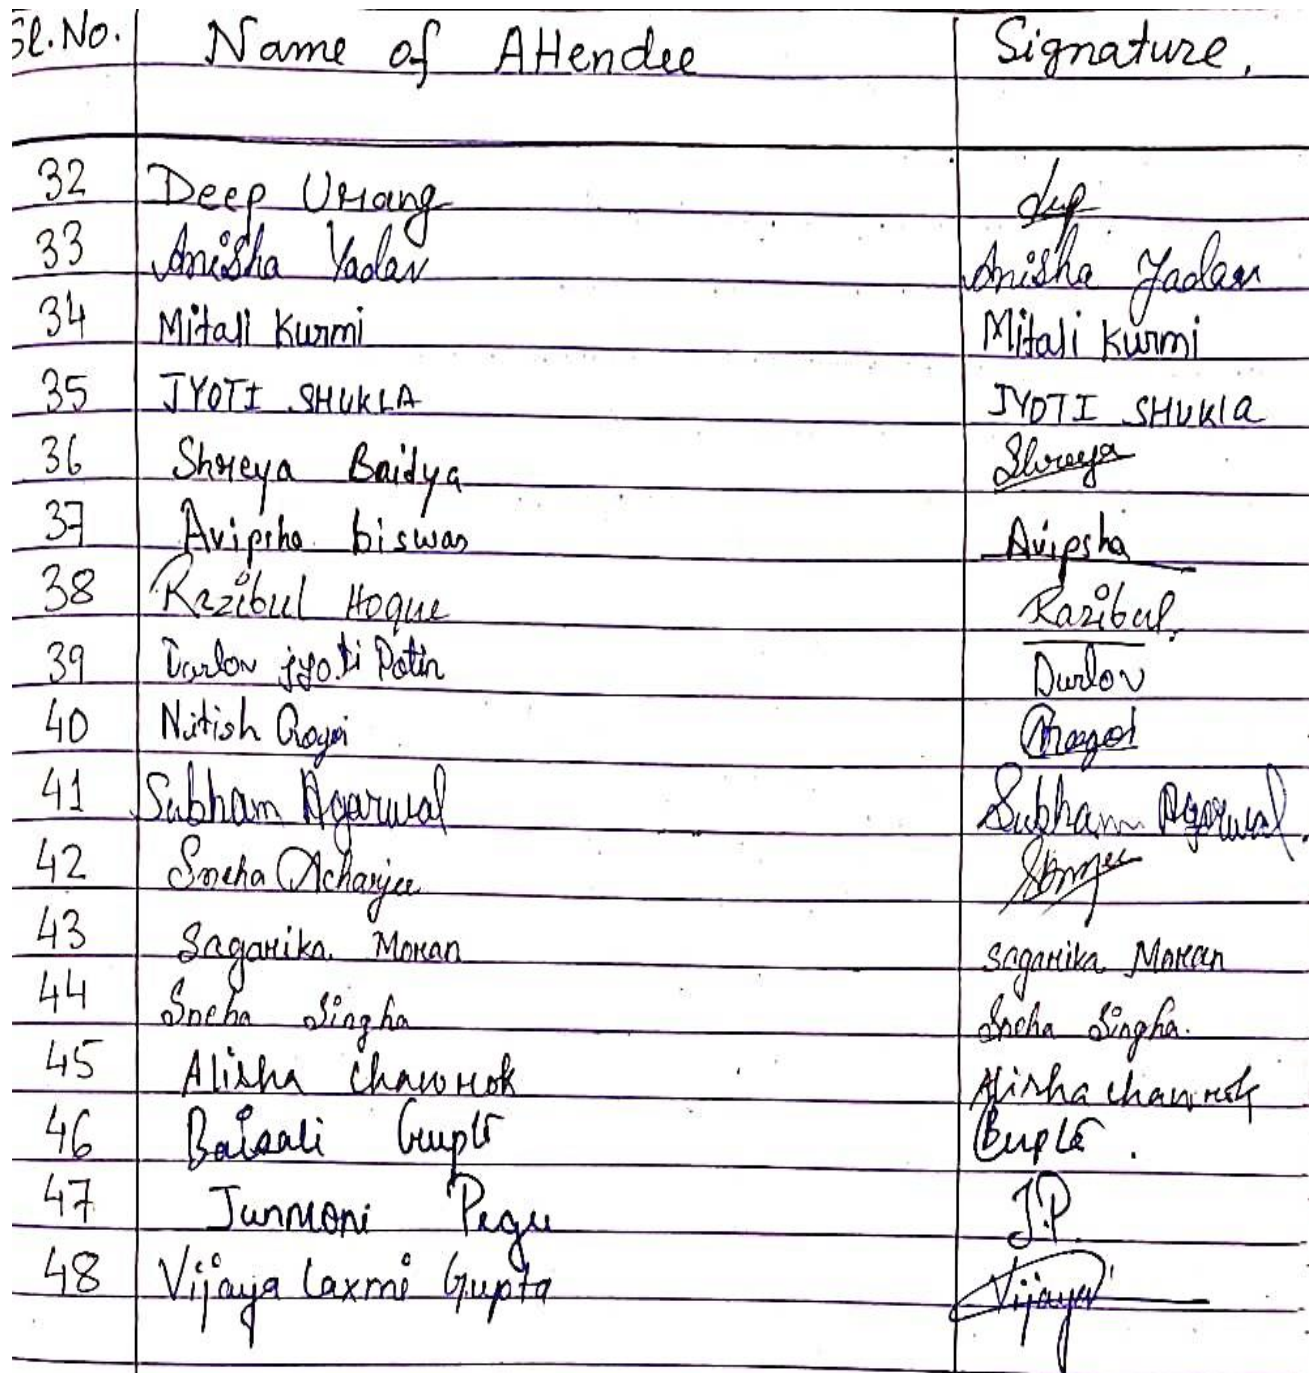 Sl.No. Name of Attendee Signature.
32 Deep Urang Deep
33 Anisha Yadav Anisha Yadav
34 Mitali Kurmi Mitali Kurmi
35 JYOTI SHUKLA JYOTI SHUKLA
36 Shreya Baidya Shreya
37 Avipsha biswas Avipsha
38 Razibul Hoque Razibul.
39 Durlov jyoti Patir Durlov
40 Nitish Gogoi Gogoi
41 Subham Agarwal Subham Agarwal.
42 Sneha Acharjee
43 Sagarika Moran Sagarika Moran
44 Sneha Singha Sneha Singha.
45 Alisha Chawrok Alisha chawrok
46 Baisali Gupta Gupta.
47 Junmoni Pegu J.P.
48 Vijaya Laxmi Gupta Vijaya